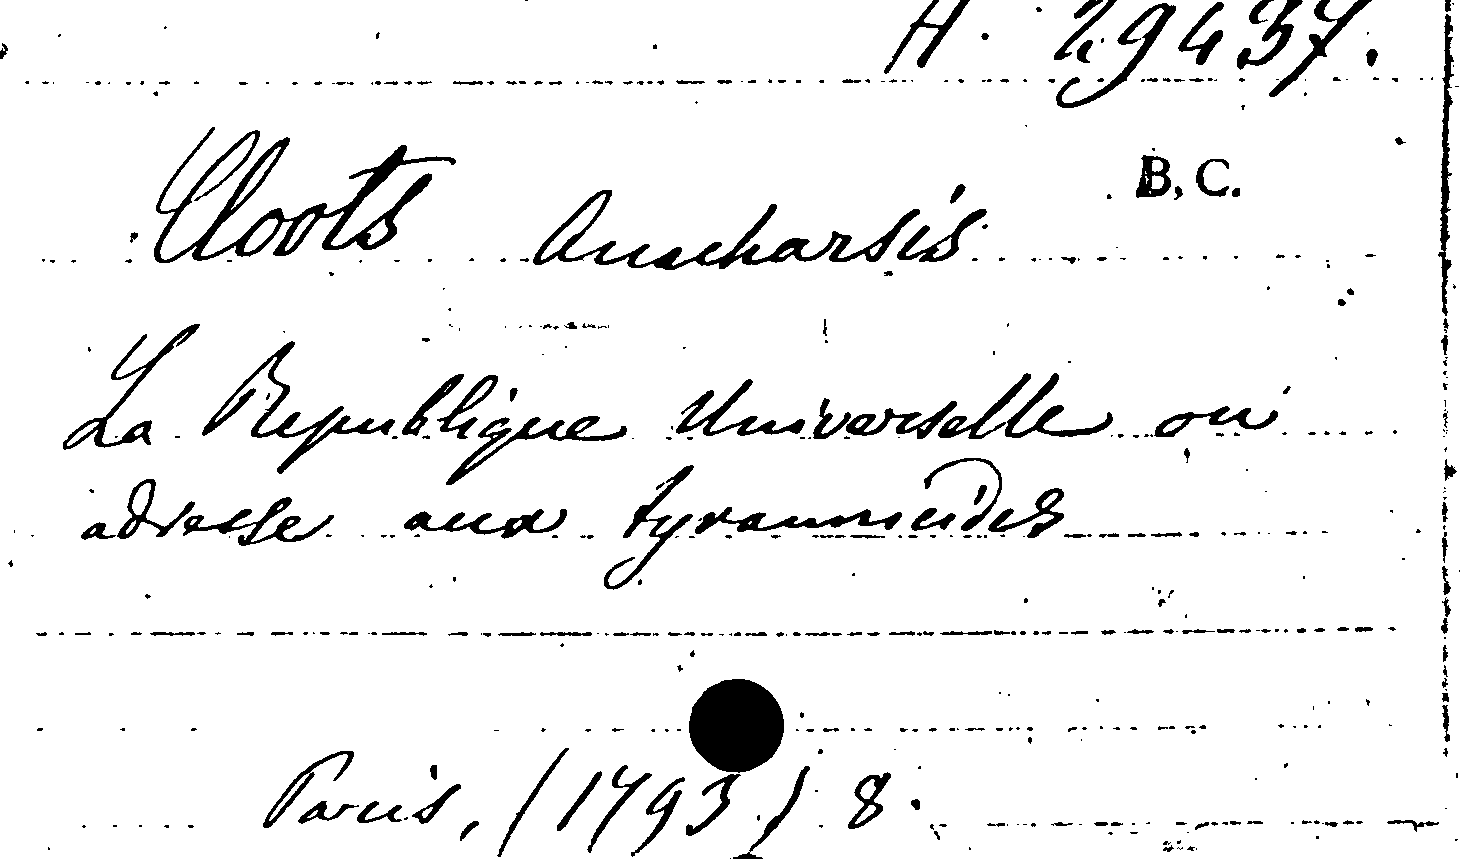 H. 29437.
B, C.
Cloots Anacharsis
La Republique Universelle ou
adresse aux tyrannicides
Paris, (1793) 8.